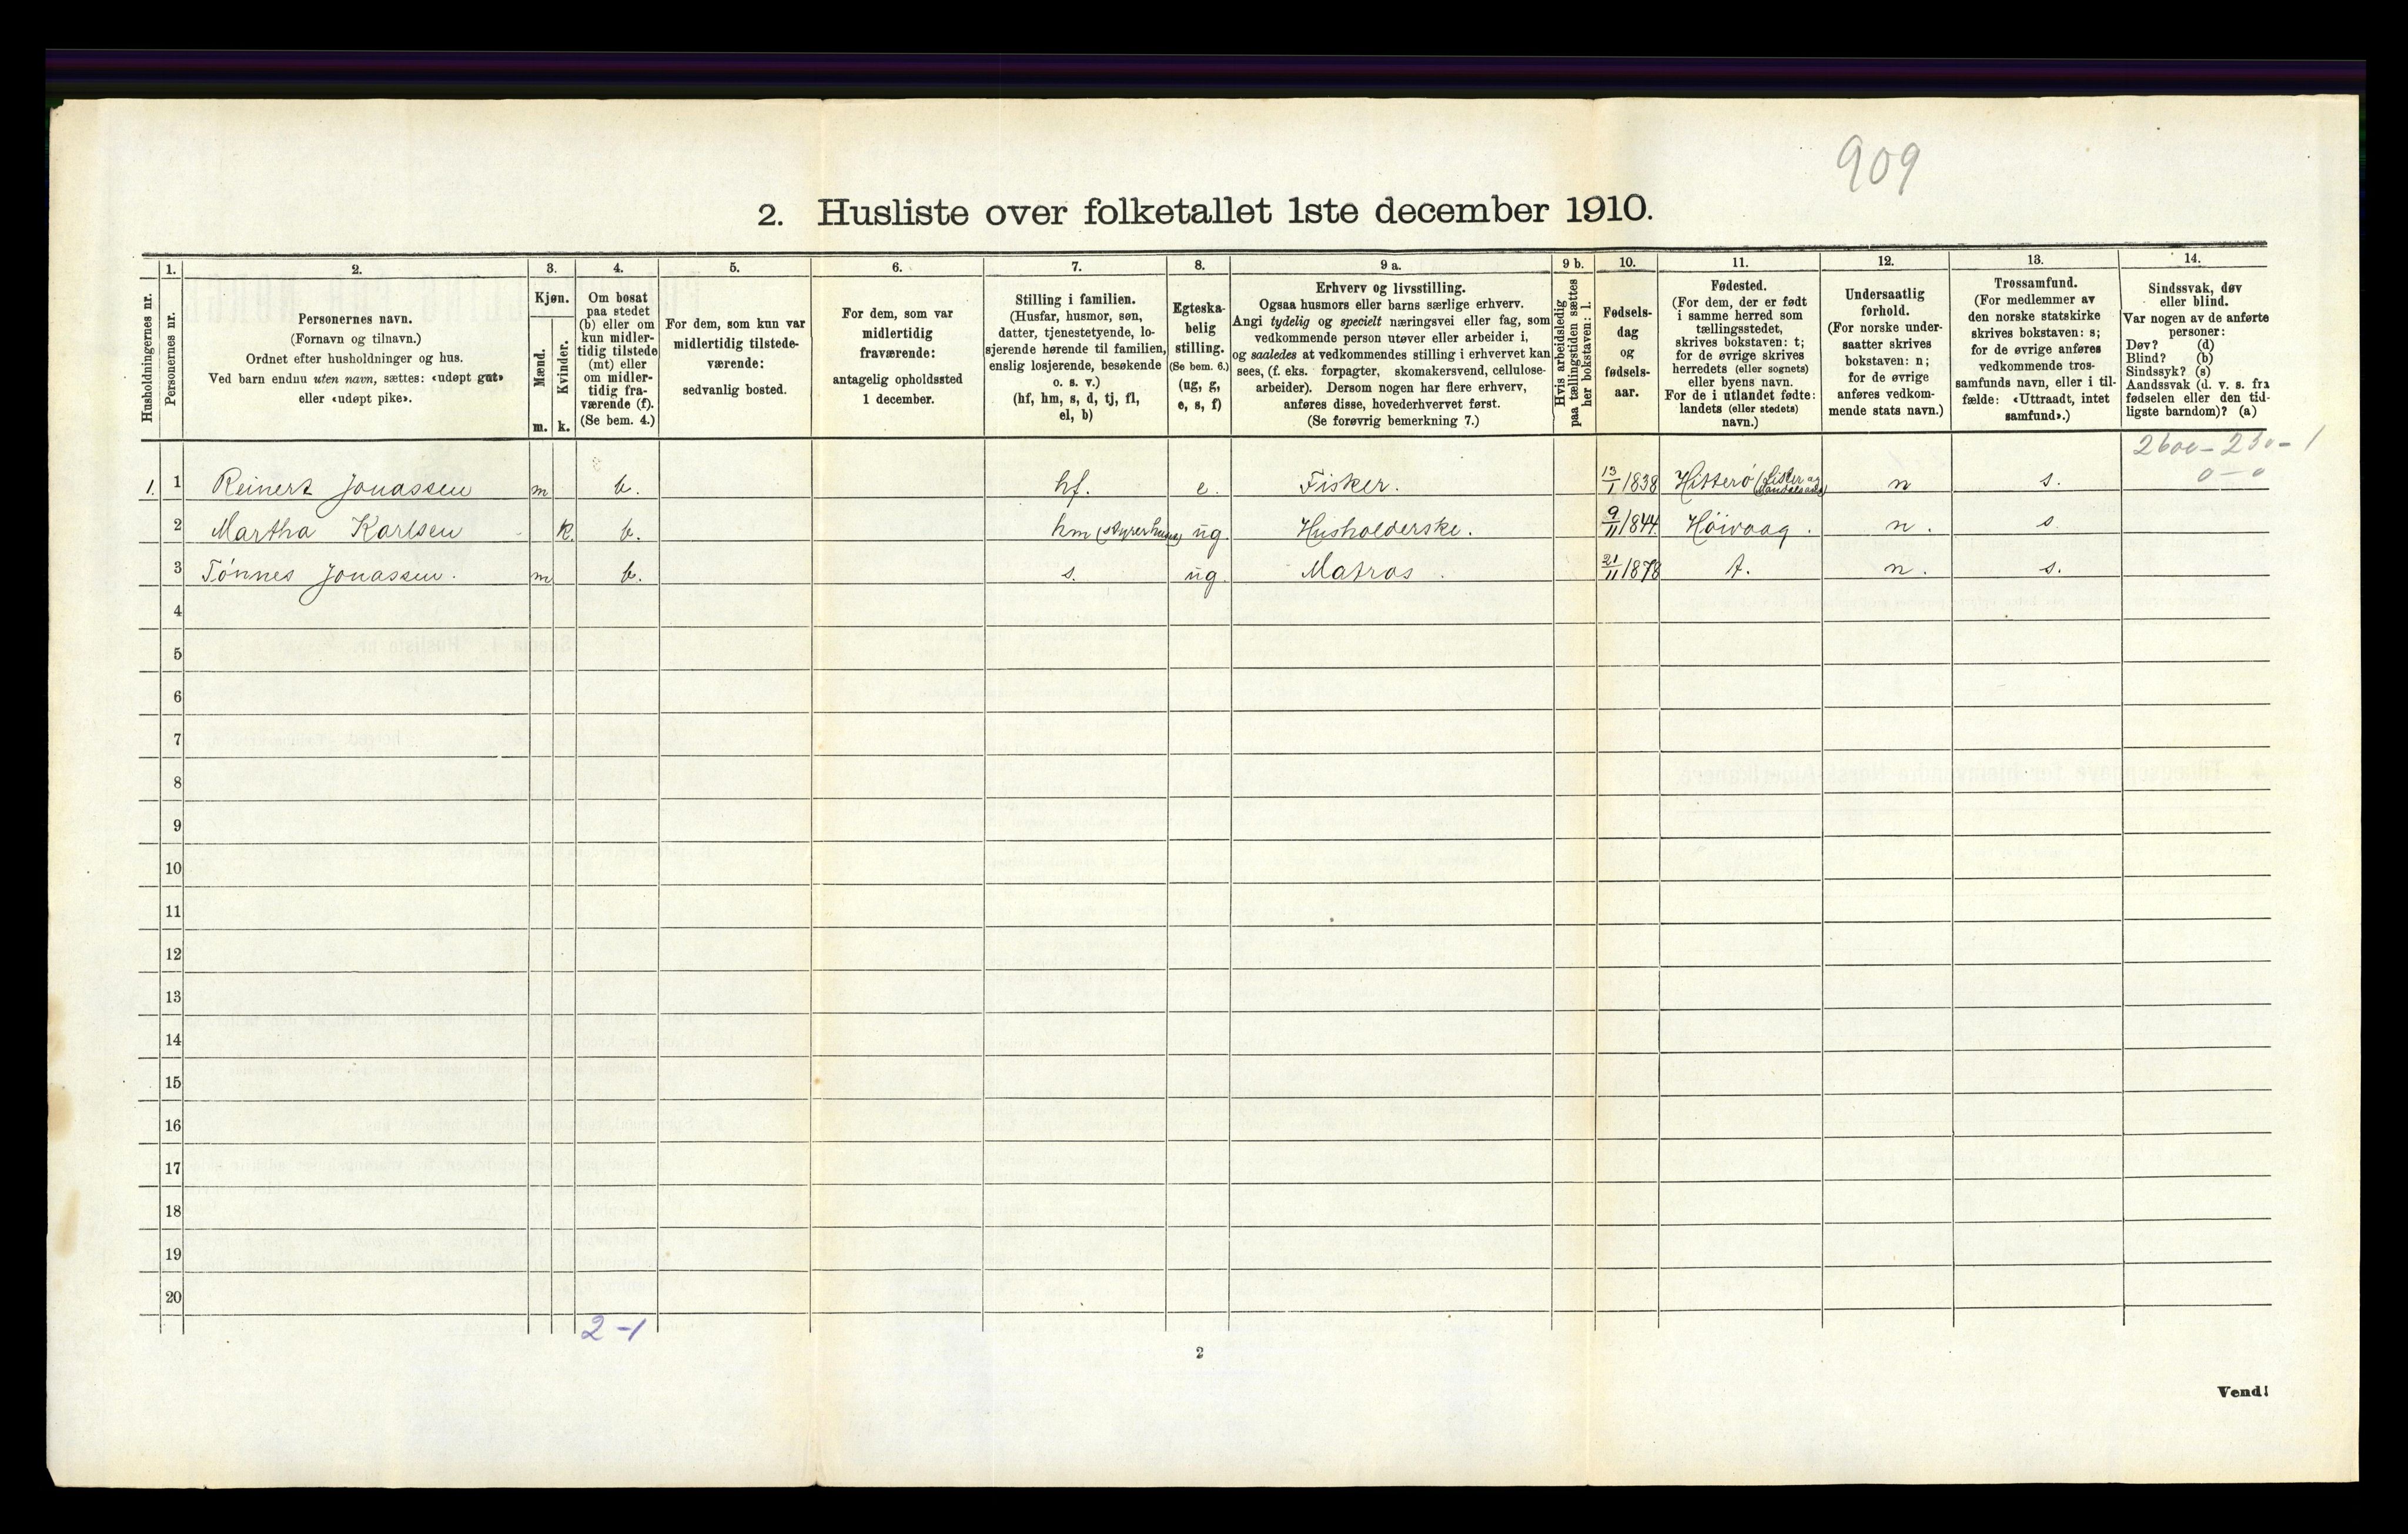 909
2. Husliste over folketallet 1ste december 1910.
Husholdningernes nr.
1.
Personernes nr.
2.
Personernes navn.
(Fornavn og tilnavn.)
Ordnet efter husholdninger og hus.
Ved barn endnu uten navn, sættes: «udøpt gut»
eller «udøpt pike».
3.
Kjøn.
Mænd.
Kvinder.
m. k.
4.
Om bosat
paa stedet
(b) eller om
kun midler-
tidig tilstede
(mt) eller
om midler-
tidig fra-
værende (f).
(Se bem. 4.)
5.
For dem, som kun var
midlertidig tilstede-
værende:
sedvanlig bosted.
6.
For dem, som var
midlertidig
fraværende:
antagelig opholdssted
1 december.
7.
Stilling i familien.
(Husfar, husmor, søn,
datter, tjenestetyende, lo-
sjerende hørende til familien,
enslig losjerende, besøkende
o. s. v.)
(hf, hm, s, d, tj, fl,
el, b)
8.
Egteska-
belig
stilling.
(Se bem. 6.)
(ug, g,
e, s, f)
9 a.
Erhverv og livsstilling.
Ogsaa husmors eller barns særlige erhverv.
Angi tydelig og specielt næringsvei eller fag, som
vedkommende person utøver eller arbeider i,
og saaledes at vedkommendes stilling i erhvervet kan
sees, (f. eks. forpagter, skomakersvend, cellulose-
arbeider). Dersom nogen har flere erhverv,
anføres disse, hovederhvervet først.
(Se forøvrig bemerkning 7.)
9 b.
Hvis arbeidsledig
paa tællingstiden sættes
her bokstaven: l.
10.
Fødsels-
dag
og
fødsels-
aar.
11.
Fødested.
(For dem, der er født
i samme herred som
tællingsstedet,
skrives bokstaven: t;
for de øvrige skrives
herredets (eller sognets)
eller byens navn.
For de i utlandet fødte:
landets (eller stedets)
navn.)
12.
Undersaatlig
forhold.
(For norske under-
saatter skrives
bokstaven: n;
for de øvrige
anføres vedkom-
mende stats navn.)
13.
Trossamfund.
(For medlemmer av
den norske statskirke
skrives bokstaven: s;
for de øvrige anføres
vedkommende tros-
samfunds navn, eller i til-
fælde: «Uttraadt, intet
samfund».)
14.
Sindssvak, døv
eller blind.
Var nogen av de anførte
personer:
Døv? (d)
Blind? (b)
Sindssyk? (s)
Aandssvak (d. v. s. fra
fødselen eller den tid-
ligste barndom)? (a)
2600 - 230 - 1
0 - 0
1. 1 Reinert Jonassen m b. hf. e. Fisker. 13/1 1838 Hitterø (Lister og Mandals amt) n s.
2 Martha Karlsen k. b. hm (styrer huset) ug. Husholderske. 9/11 1844. Høivaag. n. s
3 Tønnes Jonassen. m b. s. ug. Matros. 21/11 1878 t. n. s.
4
5
6
7
8
9
10
11
12
13
14
15
16
17
18
19
20
2-1
2
Vend!